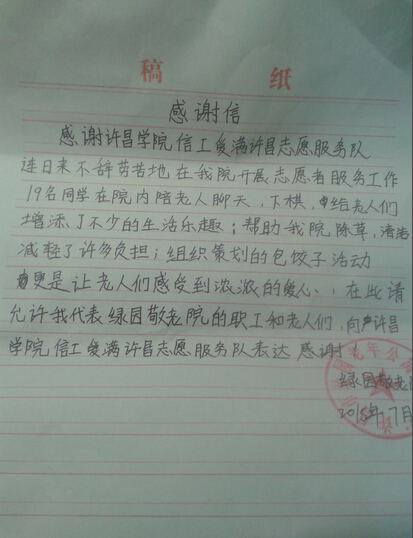 稿 纸
感谢信
感谢许昌学院信工爱满许昌志愿服务队
连日来不辞劳苦地在我院开展志愿者服务工作
19名同学在院内陪老人聊天,下棋,给老人们
增添了不少的生活乐趣;帮助我院除草,清洁
减轻了许多负担;组织策划的包饺子活动
更是让老人们感受到浓浓的爱心、在此请
允许我代表绿园敬老院的职工和老人们,向许昌
学院信工爱满许昌志愿服务队表达感谢
绿园敬老
2015年7月